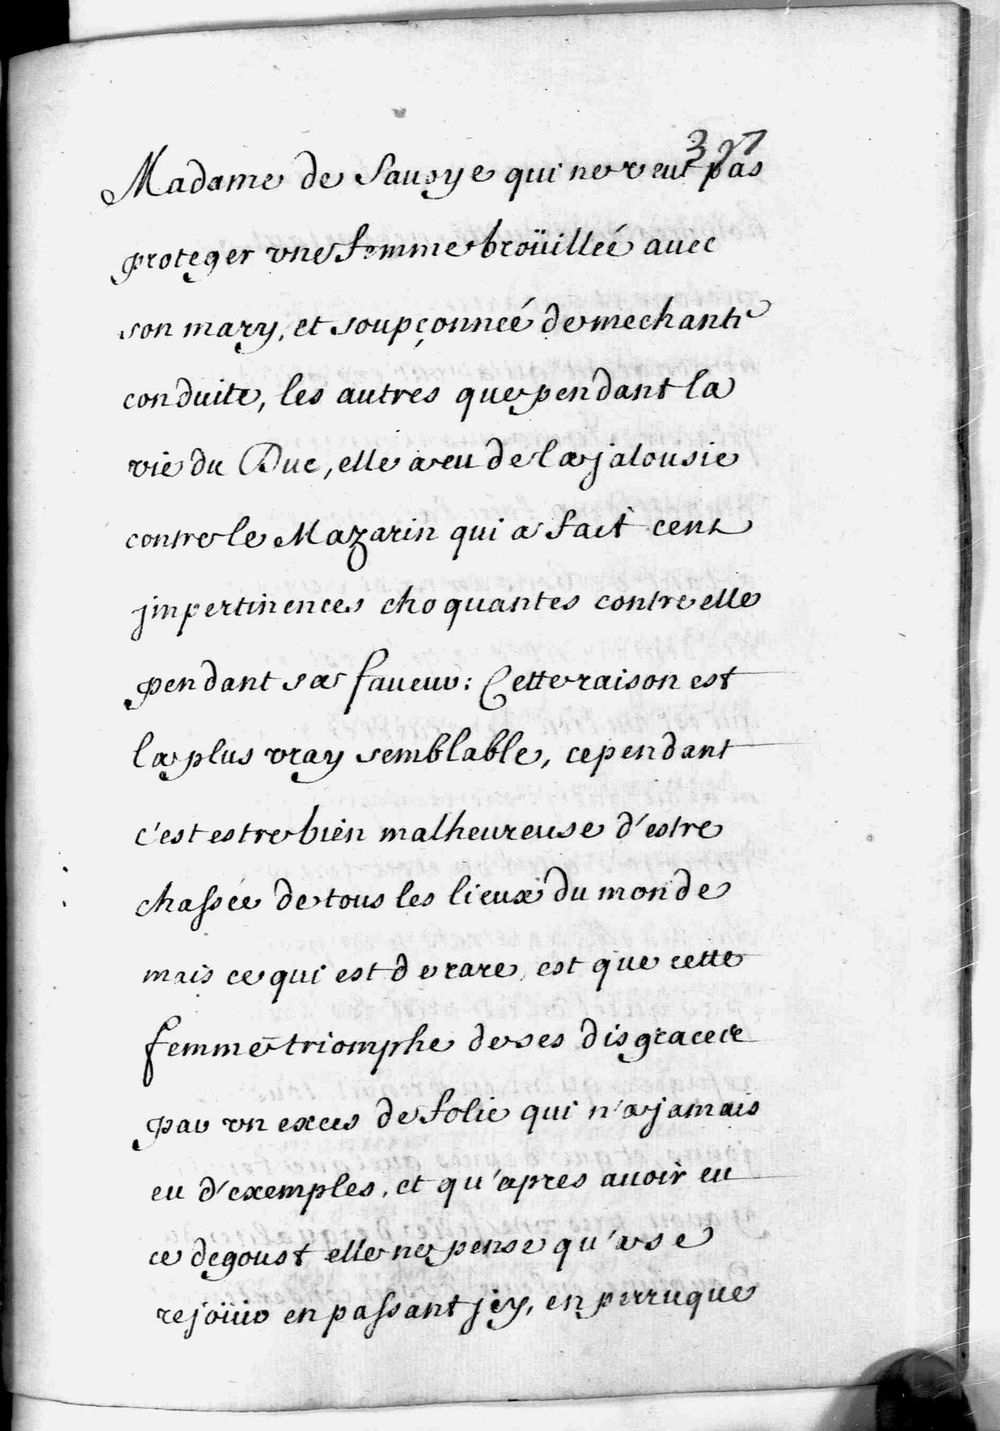 397
Madame de Savoye qui ne veut pas
proteger vne femme broüilleé avec
son mary, et soupçonneé de mechante
conduite, les autres que pendant la
vie du Duc, elle a eu de la jalousie
contre le Mazarin qui a fait cent
jmpertinences choquantes contre elle
pendant sa faveur: Cette raison est
la plus vray semblable, cependant
c'est estre bien malheureuse d'estre
chassée de tous les lieux du monde
mais ce qui est de rare, est que cette
femme triomphe de ses disgraces
par vn exces de folie qui n'a jamais
eu d'exemples, et qu'apres avoir eu
ce degoust elle ne pense qu'a se
rejoüir en passant jcy, en perruque